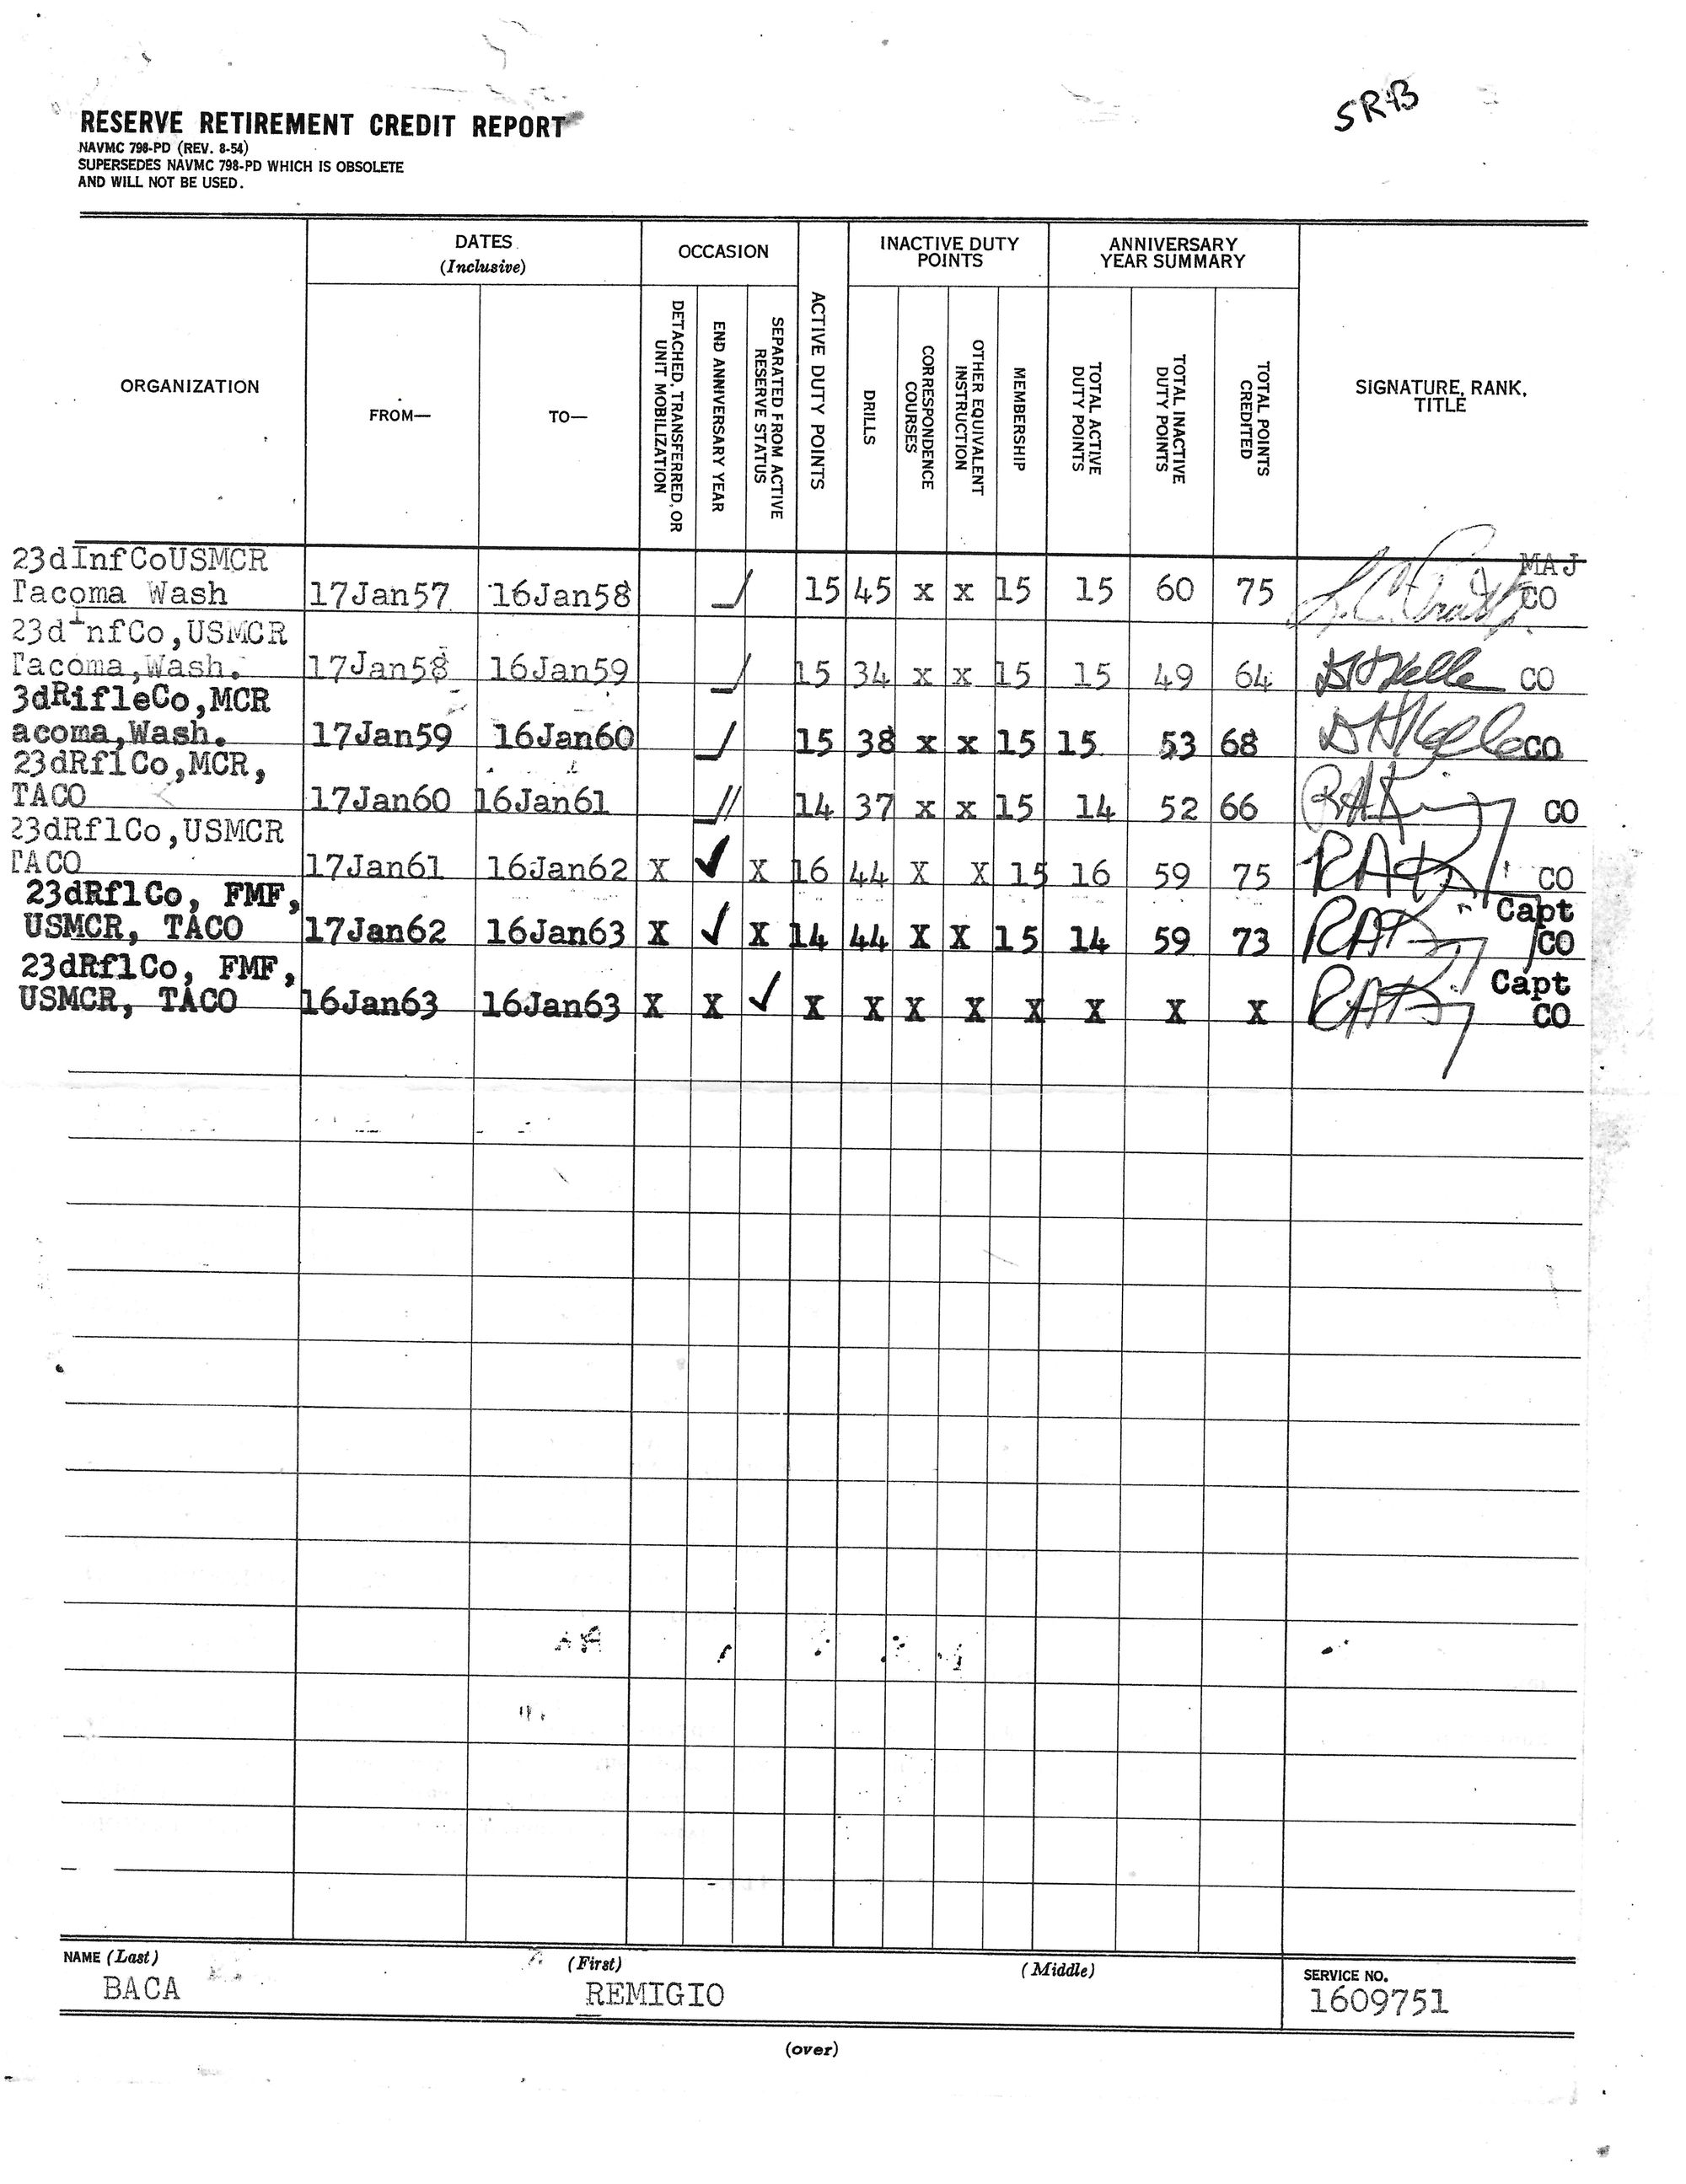 SRB
RESERVE RETIREMENT CREDIT REPORT
NAVMC 798-PD (REV. 8-54)
SUPERSEDES NAVMC 798-PD WHICH IS OBSOLETE
AND WILL NOT BE USED.
ORGANIZATION
DATES
(Inclusive)
FROM—
TO—
OCCASION
DETACHED, TRANSFERRED, OR
UNIT MOBILIZATION
END ANNIVERSARY YEAR
SEPARATED FROM ACTIVE
RESERVE STATUS
ACTIVE DUTY POINTS
INACTIVE DUTY
POINTS
DRILLS
CORRESPONDENCE
COURSES
OTHER EQUIVALENT
INSTRUCTION
MEMBERSHIP
ANNIVERSARY
YEAR SUMMARY
TOTAL ACTIVE
DUTY POINTS
TOTAL INACTIVE
DUTY POINTS
TOTAL POINTS
CREDITED
SIGNATURE, RANK,
TITLE
23dInfCoUSMCR MAJ
Tacoma Wash 17Jan57 16Jan58 15 45 x x 15 15 60 75 CO
23dInfCo,USMCR
Tacoma,Wash. 17Jan58 16Jan59 15 34 x x 15 15 49 64 CO
3dRifleCo,MCR
acoma,Wash. 17Jan59 16Jan60 15 38 x x 15 15 53 68 CO
23dRflCo,MCR,
TACO 17Jan60 16Jan61 14 37 x x 15 14 52 66 CO
23dRflCo,USMCR
TACO 17Jan61 16Jan62 X ✓ X 16 44 X X 15 16 59 75 CO
23dRflCo, FMF, Capt
USMCR, TACO 17Jan62 16Jan63 X ✓ X 14 44 X X 15 14 59 73 CO
23dRflCo, FMF, Capt
USMCR, TACO 16Jan63 16Jan63 X X ✓ X X X X X X X X CO
NAME (Last) (First) (Middle) SERVICE NO.
BACA REMIGIO 1609751
(over)